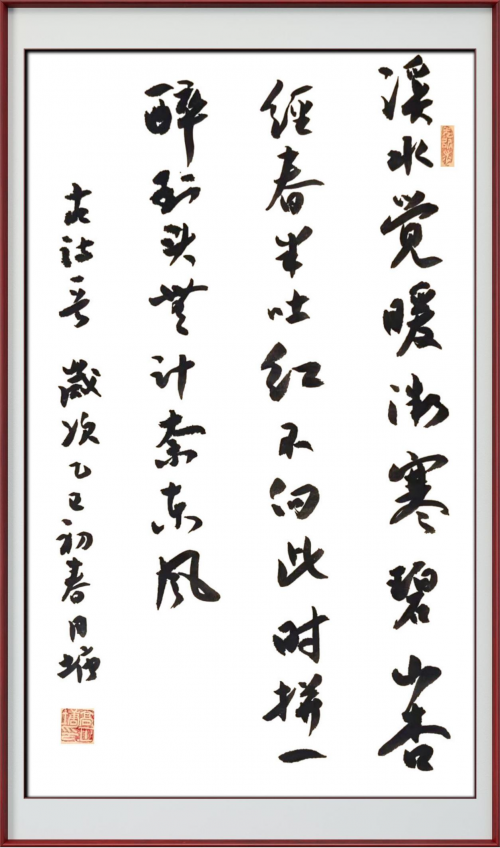 溪水觉暖寒碧山杏
經春半吐红不向此时拼一
醉到头無计奈东风
古诗一首 歲次乙巳初春月塘